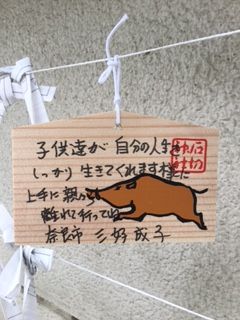 子供達が自分の人生を
しっかり生きてくれます様に
上手に親から
離れて行って
奈良市 三好成子